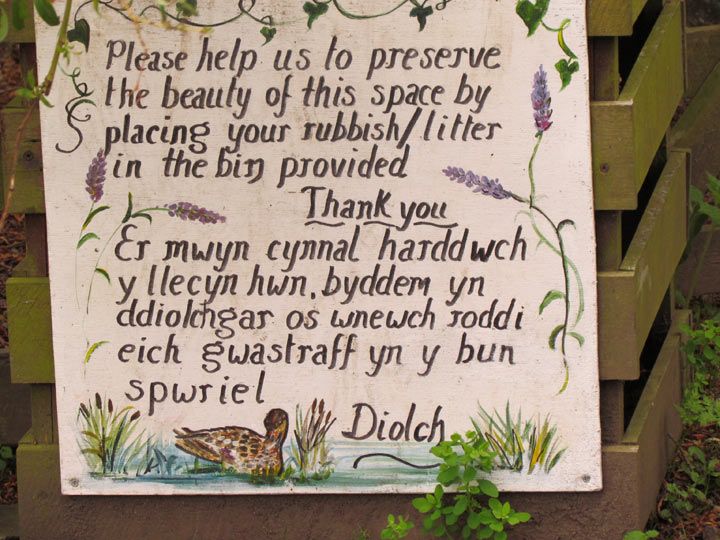 Please help us to preserve
the beauty of this space by
placing your rubbish/litter
in the bin provided
Thank you
Er mwyn cynnal harddwch
y llecyn hwn, byddem yn
ddiolchgar os wnewch roddi
eich gwastraff yn y bun
spwriel
Diolch